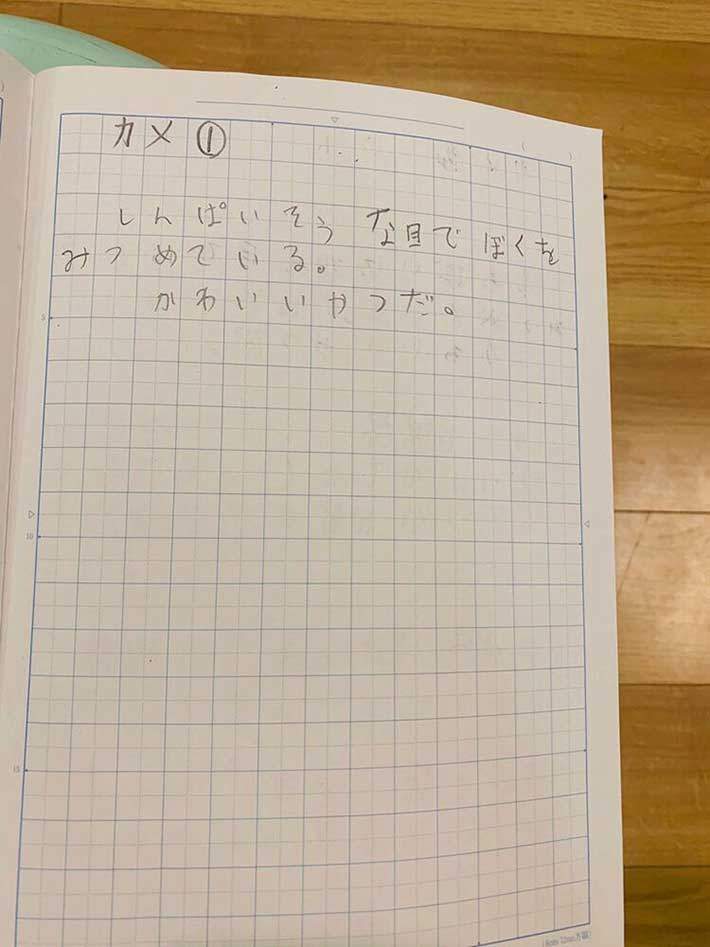 カメ①
しんぱいそうな目でぼくを
みつめている。
かわいいやつだ。
5
10
15